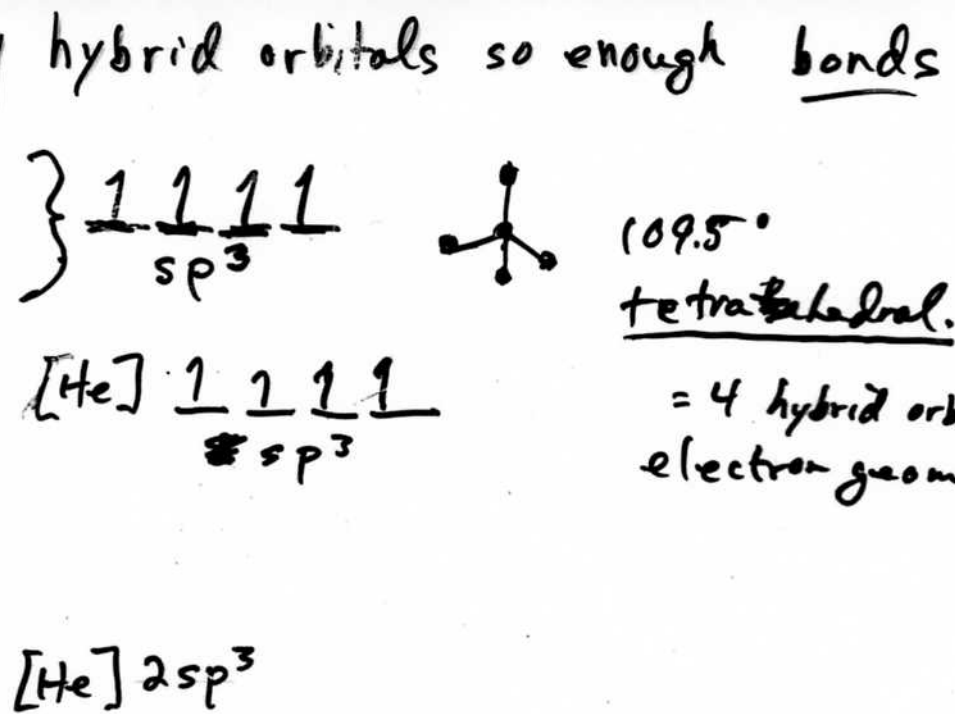 hybrid orbitals so enough bonds
} 1 1 1 1
sp³
109.5°
tetrahedral.
[He] 1 1 1 1
sp³
= 4 hybrid orb
electron geom
[He] 2sp³